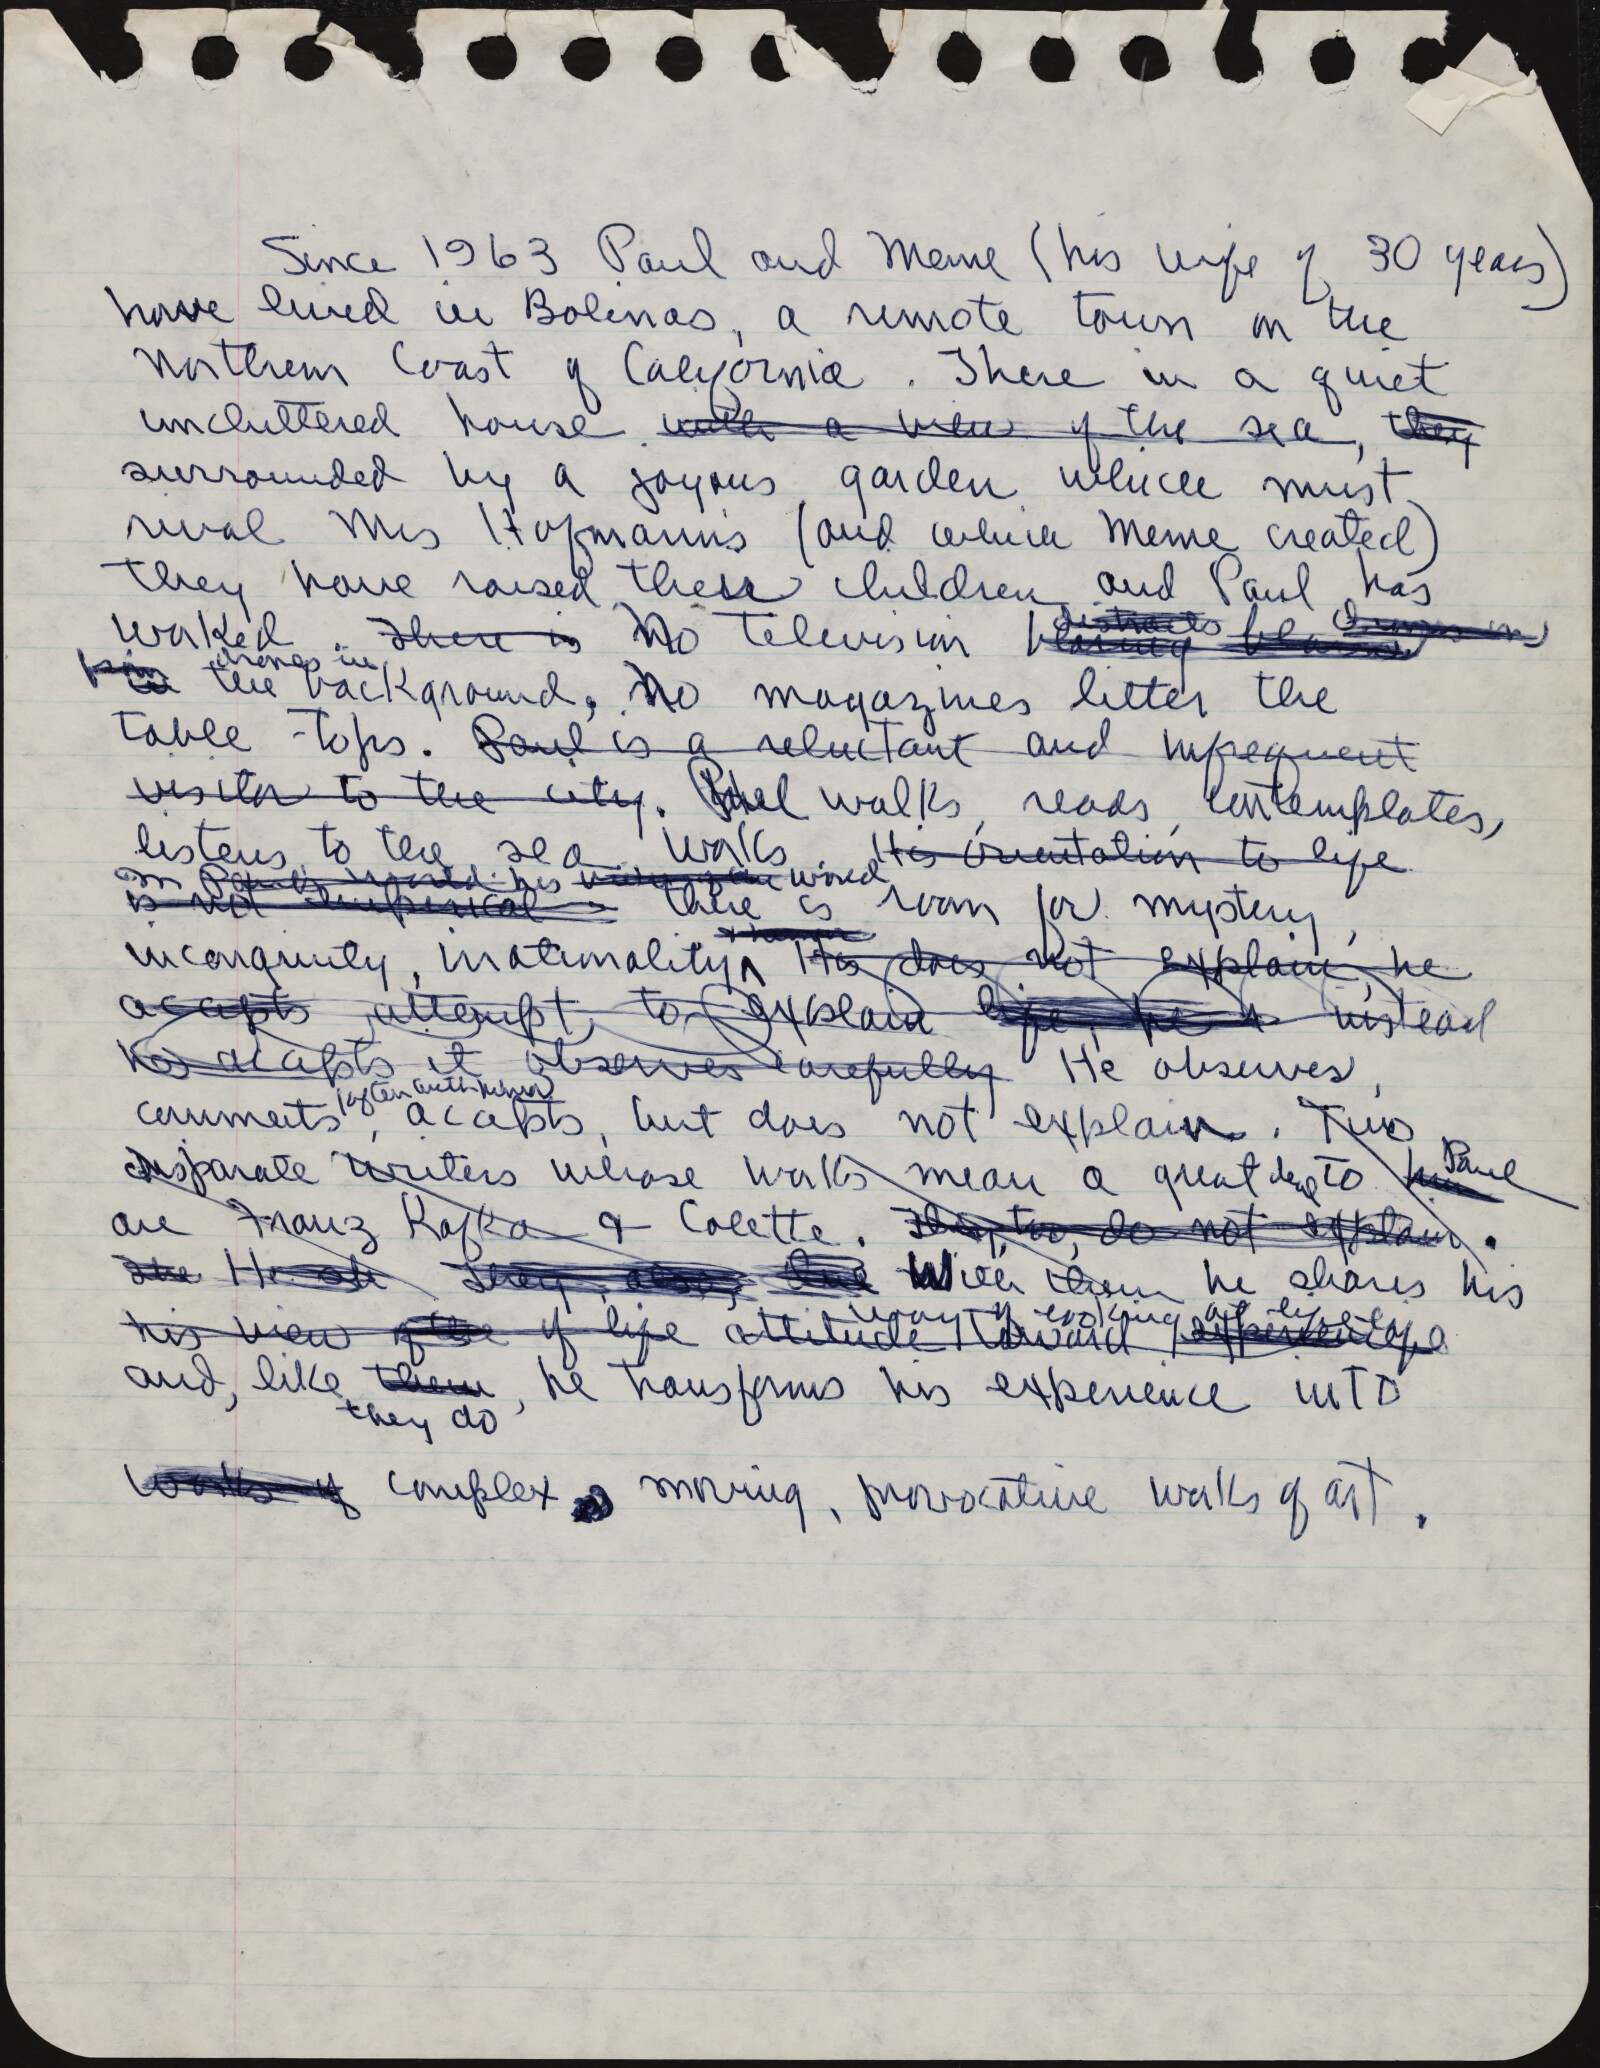 Since 1963 Paul and Meme (his wife of 30 years)
have lived in Bolinas, a remote town on the
Northern Coast of California. There in a quiet
uncluttered house with a view of the sea, they
surrounded by a joyous garden which must
rival Mrs Hofmann's (and which Meme created)
they have raised their children and Paul has
distracts drones in
worked. There is No television blaring
drones in
him the background, No magazines litter the
table-tops. Paul is a reluctant and infrequent
visitor to the city. Paul walks, reads, contemplates,
listens to the sea, works. His orientation to life
In Paul's world his world
is not there is room for mystery,
incongruity, irrationality He does not explain, he
accepts attempt to explain life, he instead
he accepts it observes carefully He observes,
(often with humor)
comments, accepts, but does not explain. Two
Paul
disparate writers whose works mean a great deal to him
are Franz Kafka & Colette. They, too, do not explain.
He They also, With them he shares his
way of looking at life
his view of life attitude toward
and, like them, he transforms his experience into
they do
works of complex, moving, provocative works of art.